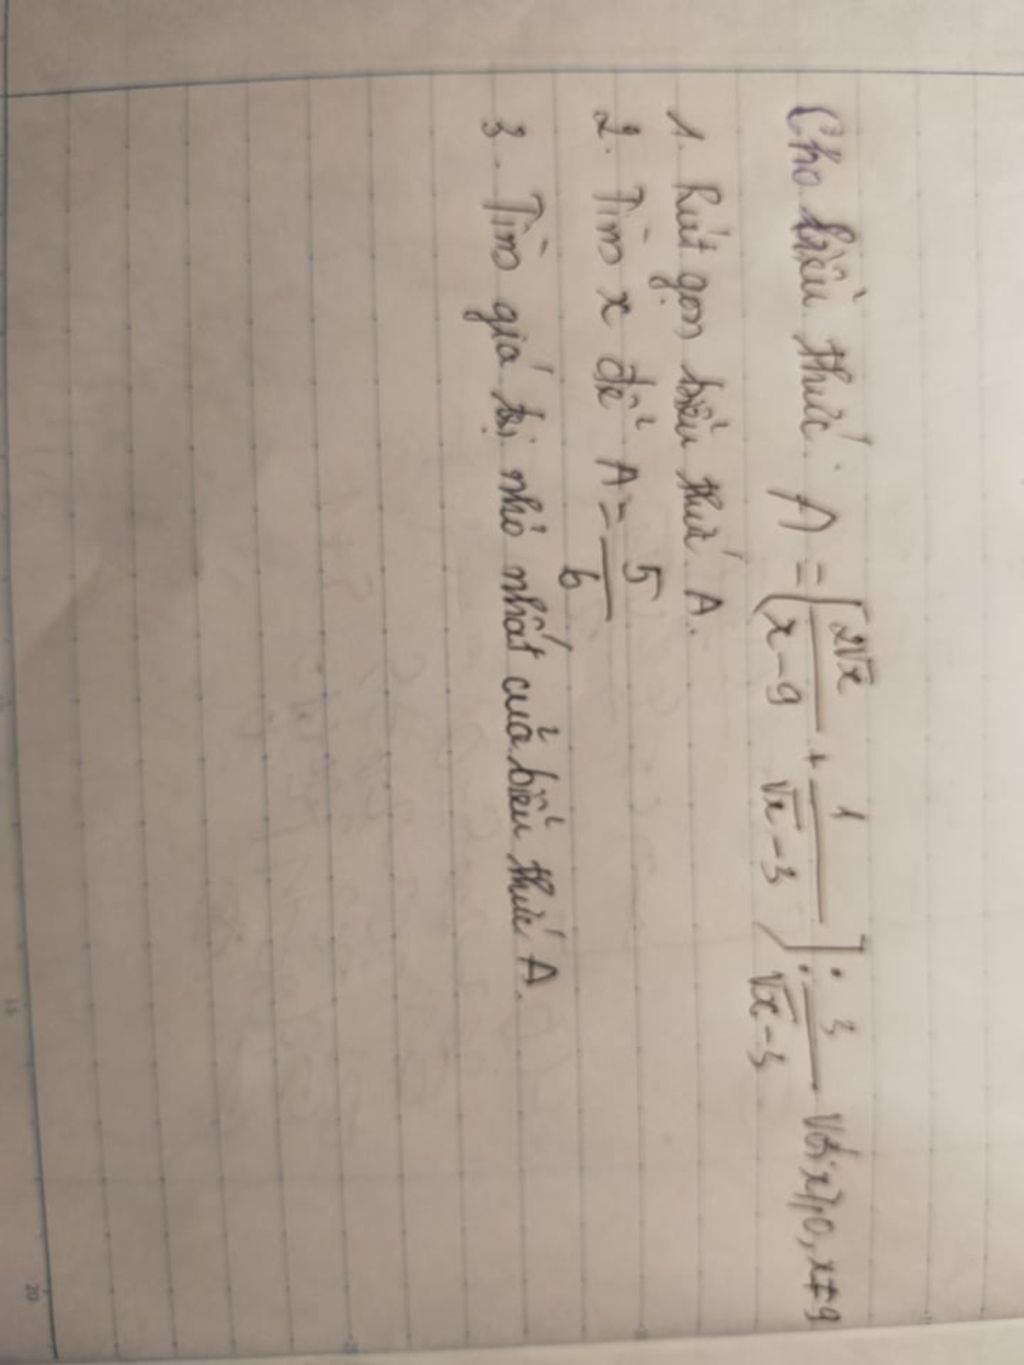 Cho biểu thức: A = (2√x/(x-9) + 1/(√x-3)) : 3/(√x-3) với x ⩾ 0, x ≠ 9
1. Rút gọn biểu thức A.
2. Tìm x để A = 5/6
3. Tìm giá trị nhỏ nhất của biểu thức A.